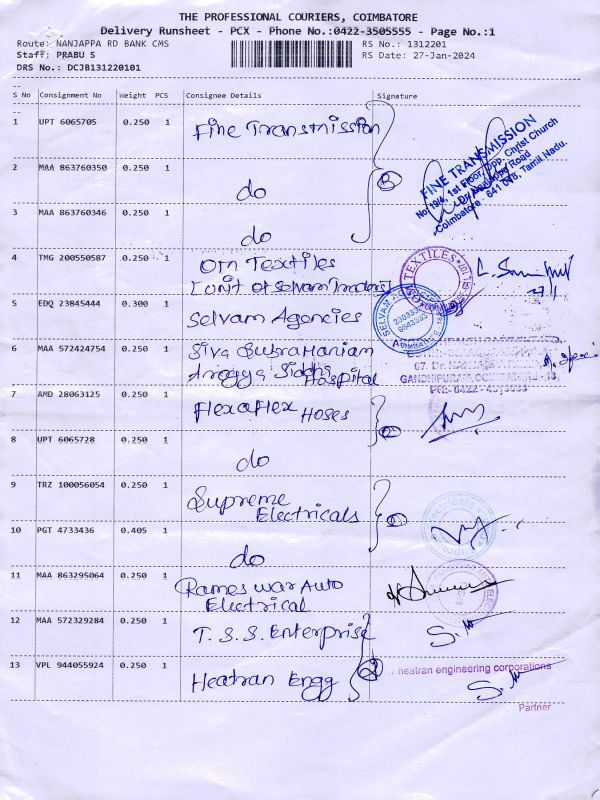 THE PROFESSIONAL COURIERS, COIMBATORE
Delivery Runsheet - PCX - Phone No.:0422-3505555 - Page No.:1
Route: NANJAPPA RD BANK CMS RS No.: 1312201
Staff: PRABU S RS Date: 27-Jan-2024
DRS No.: DCJB131220101
S No Consignment No Weight PCS Consignee Details Signature
1 UPT 6065705 0.250 1 Fine Transmission
FINE TRANSMISSION
No 19/4, 1st Floor, Opp. Christ Church
Dr. Nanjappa Road
Coimbatore - 641 018, Tamil Nadu.
2 MAA 863760350 0.250 1 do
3 MAA 863760346 0.250 1 do
4 TMG 200550587 0.250 1 Om Textiles
[unit of Selvam Traders]
TEXTILES
27/1
5 EDQ 23845444 0.300 1 Selvam Agencies
6 MAA 572424754 0.250 1 Siva Subramaniam
Arogya Siddha Hospital
67, Dr.
GANDHIPURAM
7 AMD 28063125 0.250 1 Flexaflex Hoses
8 UPT 6065728 0.250 1 do
9 TRZ 100056054 0.250 1 Supreme
Electricals
10 PGT 4733436 0.405 1 do
11 MAA 863295064 0.250 1 Rameswar Auto
Electrical
12 MAA 572329284 0.250 1 T.S.S. Enterprise
13 VPL 944055924 0.250 1 Heatran Engg
heatran engineering corporations
Partner